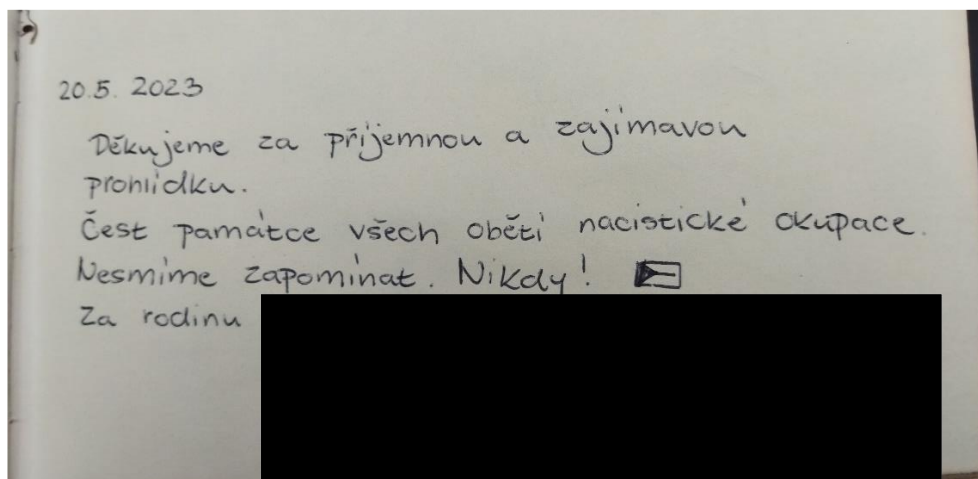 20.5. 2023
Děkujeme za příjemnou a zajímavou
prohlídku.
Čest památce všech obětí nacistické okupace.
Nesmíme zapomínat. Nikdy!
Za rodinu